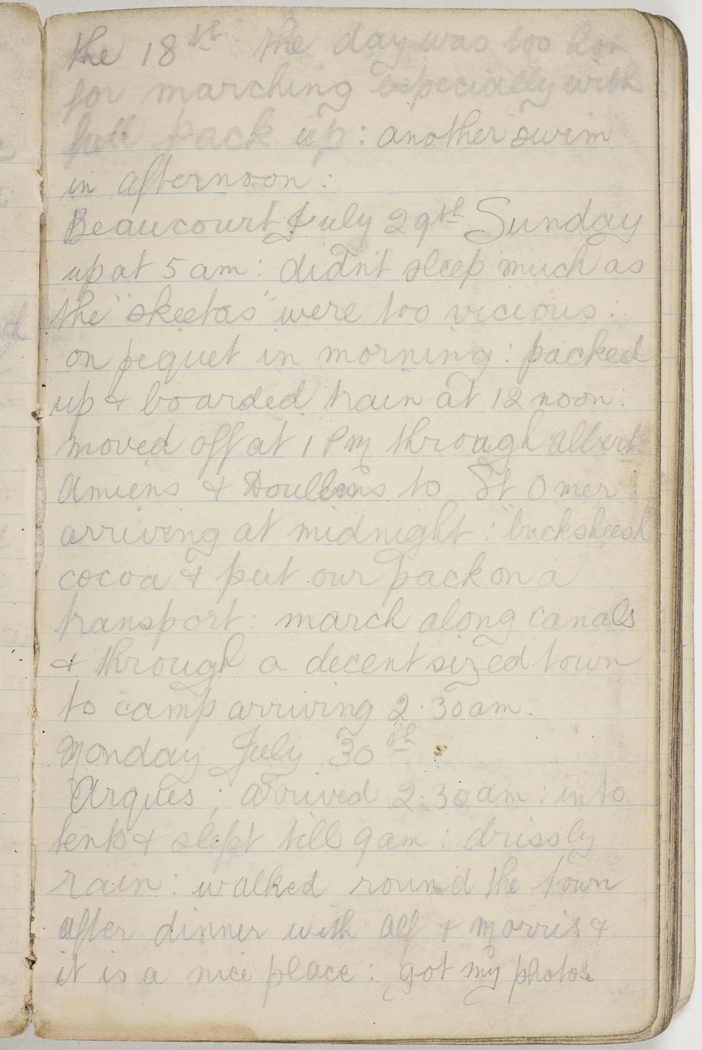 the 18th the day was too hot
for marching especially with
full pack up : another swim
in afternoon :
Beaucourt July 29th Sunday
up at 5 am : didn't sleep much as
the "skeetas" were too vicious :
on pequet in morning : packed
up & boarded train at 12 noon :
moved off at 1 Pm through albert
Amiens & Doullens to St Omer
arriving at midnight : "bucksheesh
cocoa & put our pack on a
transport : march along canals
& through a decent sized town
to camp arriving 2.30 am.
Monday July 30th
Arques ; arrived 2.30 am : into
tents & slept till 9 am : drissly
rain : walked round the town
after dinner with alf & morris &
it is a nice place : got my photos